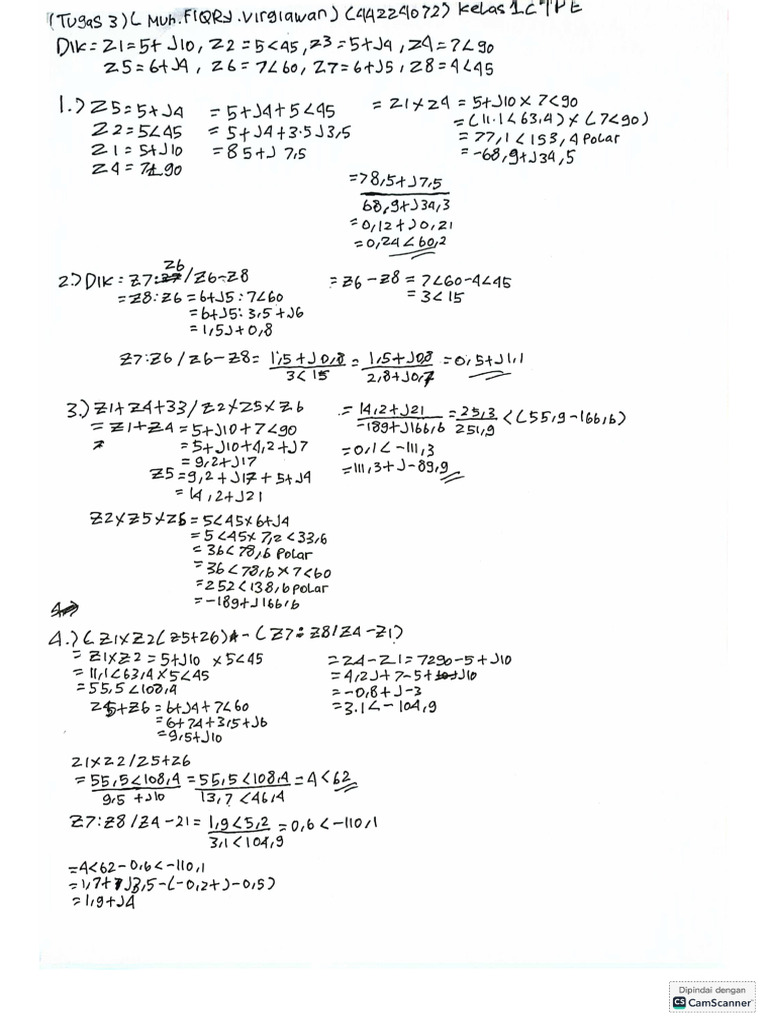 (Tugas 3) ( Muh.FIQRJ.Virgiawan) (44224072) Kelas 1C TPE
DIK = Z1 = 5+J10, Z2 = 5<45, Z3 = 5+J4, Z4 = 7<90
Z5 = 6+J4, Z6 = 7<60, Z7 = 6+J5, Z8 = 4<45
1.) Z5 = 5+J4 = 5+J4+5<45 = Z1×Z4 = 5+J10×7<90
Z2 = 5<45 = 5+J4+3.5J3,5 = (11.1<63,4)×(7<90)
Z1 = 5+J10 = 85+J7,5 = 77,1<153,4 Polar
Z4 = 7<90 = -68,9+J34,5
= 78,5+J7,5
68,9+J34,3
= 0,12+J0,21
= 0,24<60,2
2.) DIK = Z7:Z6/Z6-Z8 = Z6-Z8 = 7<60-4<45
= Z8:Z6 = 6+J5:7<60 = 3<15
= 6+J5:3,5+J6
= 1,5J+0,8
Z7:Z6/Z6-Z8 = 1,5+J0,8 = 1,5+J08 = 0,5+J1,1
3<15 2,8+J0,7
3.) Z1+Z4+33/Z2×Z5×Z6 = 14,2+J21 = 25,3 <(55,9-166,6)
= Z1+Z4 = 5+J10+7<90 -189+J166,6 251,9
= 5+J10+4,2+J7 = 0,1<-111,3
= 9,2+J17 = 111,3+J-89,9
Z5 = 9,2+J17+5+J4
= 14,2+J21
Z2×Z5×Z6 = 5<45×6+J4
= 5<45×7,2<33,6
= 36<78,6 Polar
= 36<78,6×7<60
= 252<138,6 Polar
= -189+J166,6
4.) (Z1×Z2(Z5+Z6) - (Z7:Z8/Z4-Z1)
= Z1×Z2 = 5+J10 × 5<45 = Z4-Z1 = 7290-5+J10
= 11,1<63,4×5<45 = 4,2J+7-5+J10
= 55,5<108,4 = -0,8+J-3
Z5+Z6 = 6+J4+7<60 = 3.1<-104,9
= 6+74+3,5+J6
= 9,5+J10
Z1×Z2/Z5+Z6
= 55,5<108,4 = 55,5<108,4 = 4<62
9,5+J10 13,7<46,4
Z7:Z8/Z4-Z1 = 1,9<5,2 = 0,6<-110,1
3,1<104,9
= 4<62-0,6<-110,1
= 1,7+J3,5-(-0,2+J-0,5)
= 1,9+J4
Dipindai dengan
CS CamScanner